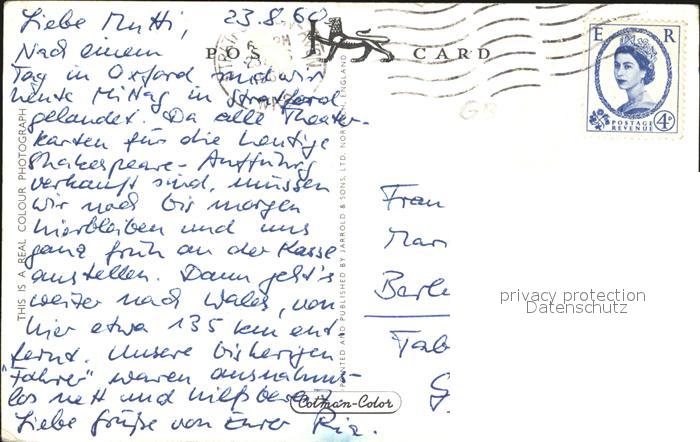 Liebe Mutti, 23.8.60
Nach einem
Tag in Oxford sind wir
heute Mittag in Stratford
gelandet. Da alle Theater-
karten für die heutige
Shakespeare-Aufführg
verkauft sind, müssen
wir noch bis morgen
hierbleiben und uns
ganz früh an der Kasse
anstellen. Dann geht's
weiter nach Wales, von
hier etwa 135 km ent
fernt. Unsere bisherigen
"Fahrer" waren ausnahms-
los nett und hilfsbereit.
Liebe Grüße von Eurer Ria.
POST CARD
THIS IS A REAL COLOUR PHOTOGRAPH
PRINTED AND PUBLISHED BY JARROLD & SONS, LTD. NORWICH, ENGLAND
Cotman-Color
E R
POSTAGE
REVENUE
4D
GB
Frau
Mar
Berl
privacy protection
Datenschutz